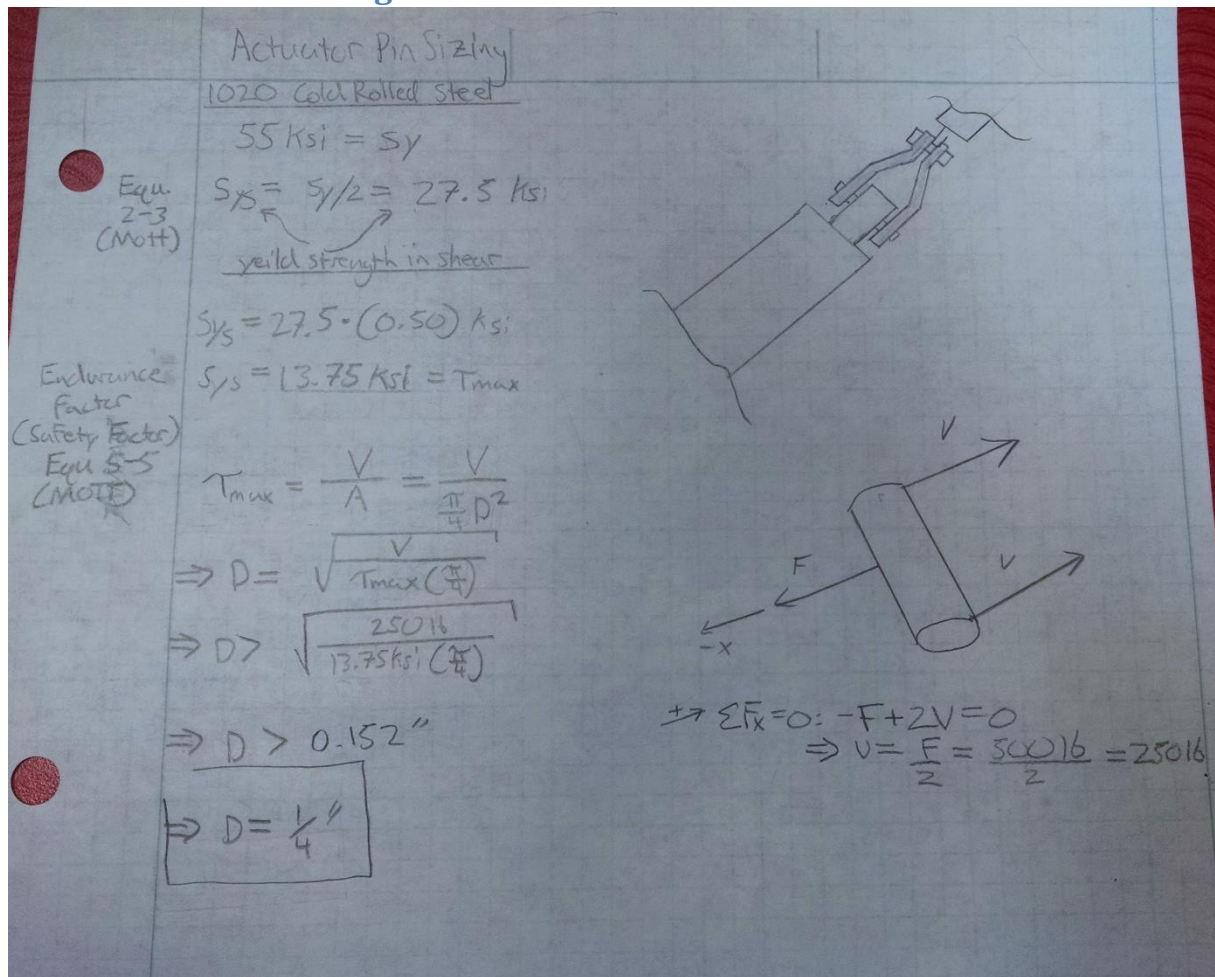 Actuator Pin Sizing
1020 Cold Rolled Steel
55 Ksi = Sy
Equ. 2-3 (Mott)
Sys = Sy/2 = 27.5 Ksi
yeild strength in shear
Sys = 27.5·(0.50) Ksi
Endurance Factor (Safety Factor) Equ 5-5 (MOTT)
Sys = 13.75 Ksi = Tmax
Tmax = V/A = V/(π/4 D²)
⇒ D = √(V/(Tmax(π/4)))
⇒ D > √(250 lb/(13.75 Ksi(π/4)))
⇒ D > 0.152"
⇒ D = 1/4"
V
V
F
-x
+→ ΣFx=0: -F+2V=0
⇒ V = F/2 = 500 lb/2 = 250 lb